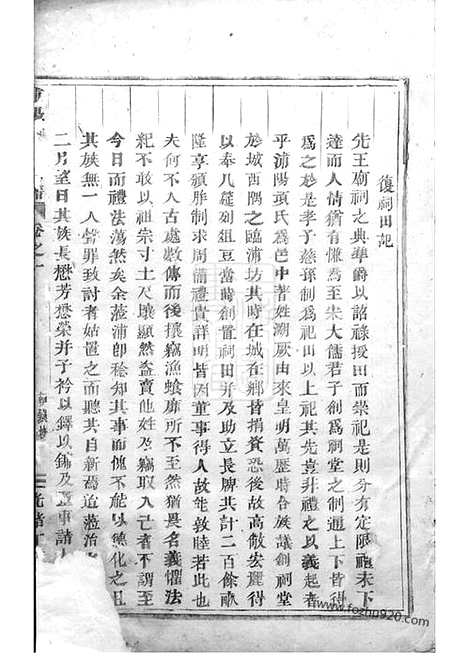 復祠田記
先王廟祠之典華爵以詔祿授田而崇祀是則分有定限禮未下
達而人情猶有慊焉至宋大儒君子創為祠堂之制通上下皆得
為之於是孝子慈孫制為祀田以上祀其先意非禮之以義起者
乎浦陽項氏為邑中著姓溯厥由來皇明萬歷時合族議創祠堂
於城西隅之臨浦坊其時在城在鄉皆捐資恐後故高敞宏麗得
以奉几筵列俎豆當時創置祠田并及助立長牌共計二百餘畝
隆享頒胙制求周備禮貴詳明皆因董事得人故能敦睦若此也
夫何不人古處數傳而後攘竊漁蝕靡所不至然猶畏名義懼法
紀不敢以祖宗寸土片壤顯然盜賣他人竊取入己者不謂至
今日而禮法蕩然矣余蒞浦即稔知其事而愧不能以德化之且
其族無一人聲罪致討者姑置之而聽其自新焉迨蒞治
二月望日其族長懋芳懋榮并子衿以鐸以鏞及董事諸人
卷之一